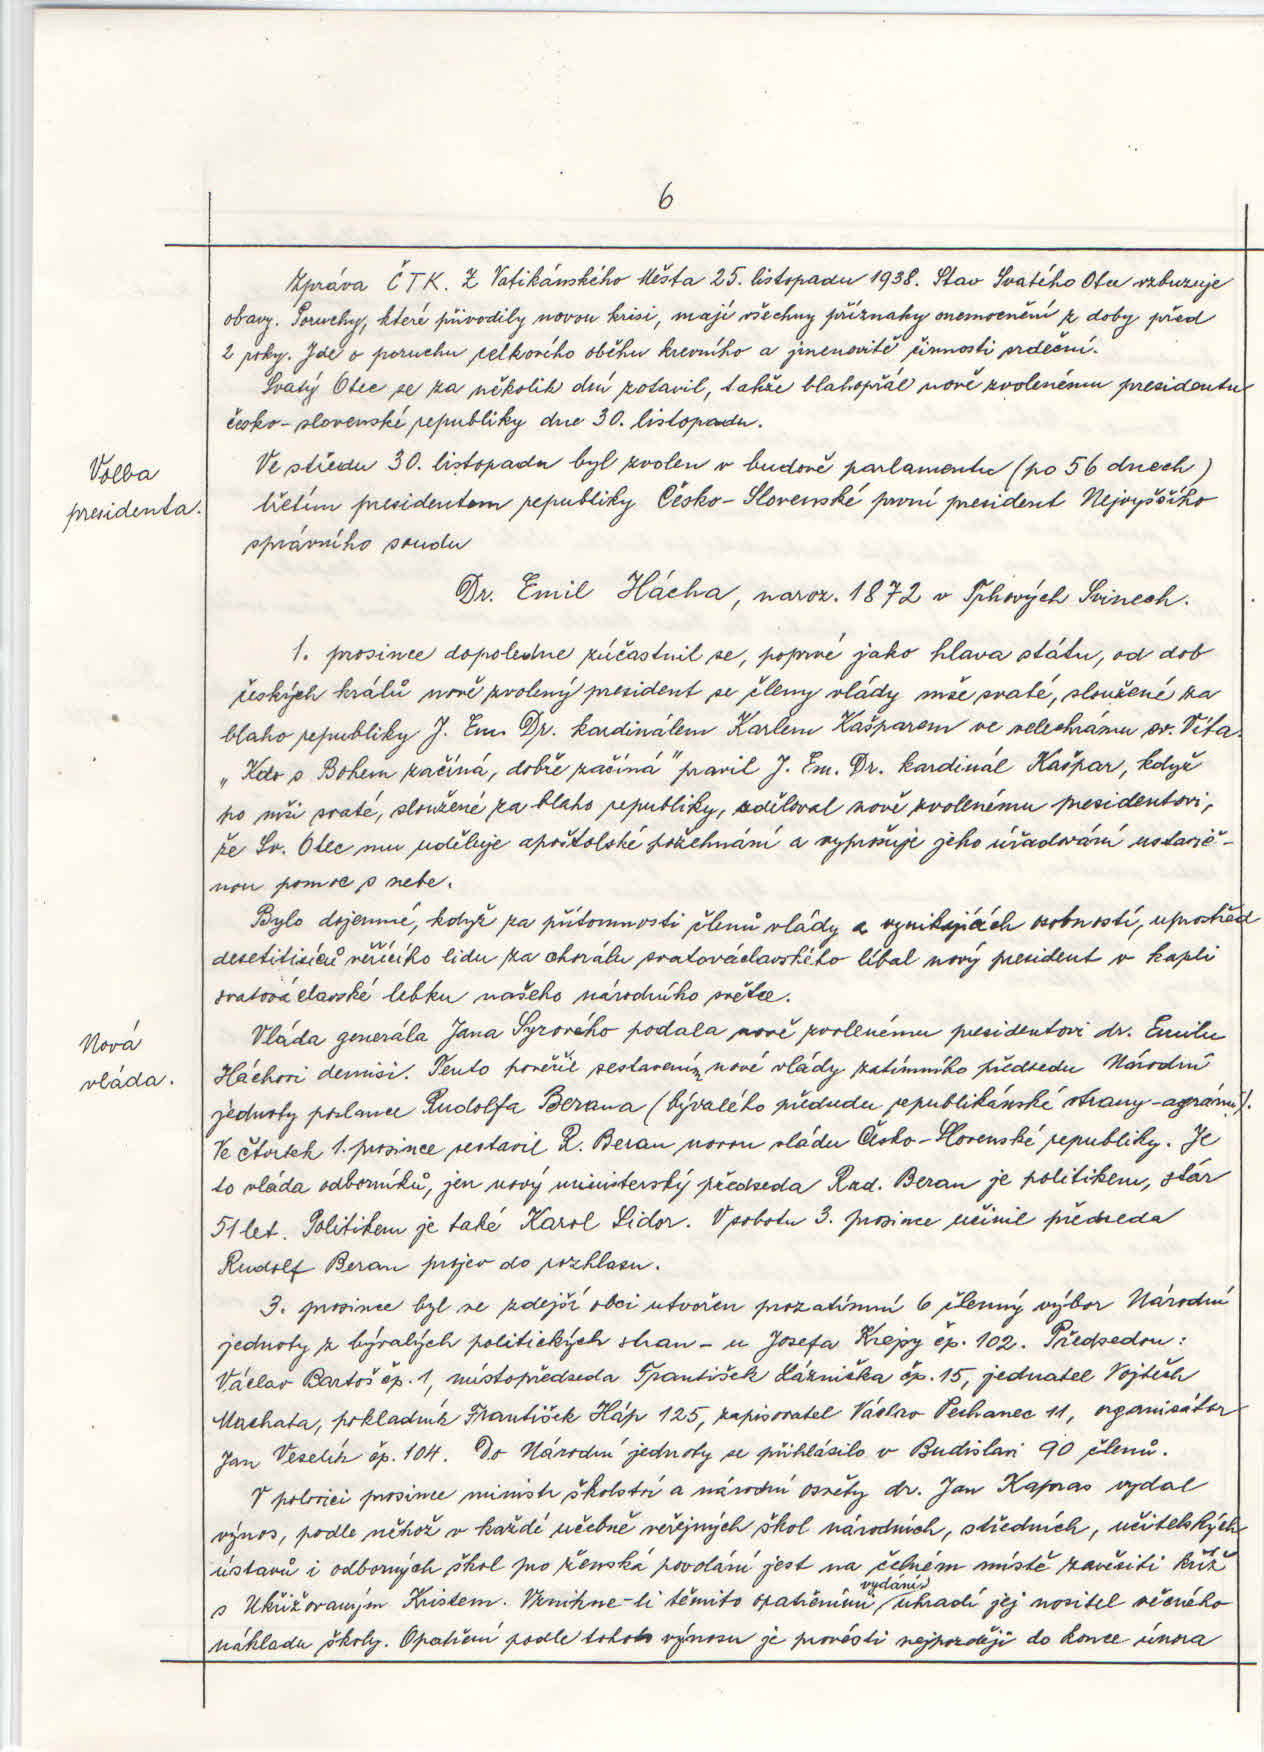 6
Zpráva ČTK. Z Vatikánského Města 25. listopadu 1938. Stav Svatého Otce vzbuzuje
obavy. Poruchy, které přivodily novou krisi, mají všechny příznaky onemocnění z doby před
2 roky. Jde o poruchu celkového oběhu krevního a jmenovitě činnosti srdeční.
Svatý Otec se za několik dní zotavil, takže blahopřál nově zvolenému presidentu
česko-slovenské republiky dne 30. listopadu.
Volba
presidenta.
Ve středu 30. listopadu byl zvolen v budově parlamentu (po 56 dnech)
třetím presidentem republiky Česko-Slovenské první president Nejvyššího
správního soudu
Dr. Emil Hácha, naroz. 1872 v Trhových Svinech.
1. prosince dopoledne zúčastnil se, poprvé jako hlava státu, od dob
českých králů nově zvolený president se členy vlády mše svaté, sloužené za
blaho republiky J. Em. Dr. kardinálem Karlem Kašparem ve velechrámu sv. Víta.
„Kdo s Bohem začíná, dobře začíná" pravil J. Em. Dr. kardinál Kašpar, když
po mši svaté, sloužené za blaho republiky, sděloval nově zvolenému presidentovi,
že Sv. Otec mu uděluje apoštolské požehnání a vyprošuje jeho úřadování ustavič-
nou pomoc s nebe.
Bylo dojemné, když za přítomnosti členů vlády a vynikajících osobností, uprostřed
desetitisíců věřícího lidu za chorálu svatováclavského líbal nový president v kapli
svatováclavské lebku našeho národního světce.
Nová
vláda.
Vláda generála Jana Syrového podala nově zvolenému presidentovi dr. Emilu
Háchovi demisi. Tento pověřil sestavením nové vlády zatímního předsedu Národní
jednoty poslance Rudolfa Berana (bývalého předsedu republikánské strany-agrární).
Ve čtvrtek 1. prosince sestavil R. Beran novou vládu Česko-Slovenské republiky. Je
to vláda odborníků, jen nový ministerský předseda Rud. Beran je politikem, stár
51 let. Politikem je také Karol Sidor. V sobotu 3. prosince učinil předseda
Rudolf Beran projev do rozhlasu.
3. prosince byl ve zdejší obci utvořen prozatímní 6 členný výbor Národní
jednoty z bývalých politických stran - u Josefa Krejzy čp. 102. Předsedou:
Václav Bartoš čp. 1, místopředseda František Láznička čp. 15, jednatel Vojtěch
Machata, pokladník František Háp 125, zapisovatel Václav Pechanec 11, organisátor
Jan Veselík čp. 104. Do Národní jednoty se přihlásilo v Budislavi 90 členů.
V polovici prosince ministr školství a národní osvěty dr. Jan Kapras vydal
výnos, podle něhož v každé učebně veřejných škol národních, středních, učitelských
ústavů i odborných škol pro ženská povolání jest na čelném místě zavěsiti kříž
s Ukřižovaným Kristem. Vznikne-li těmito opatřeními vydání, uhradí jej nositel věcného
nákladu školy. Opatření podle tohoto výnosu je provésti nejpozději do konce února